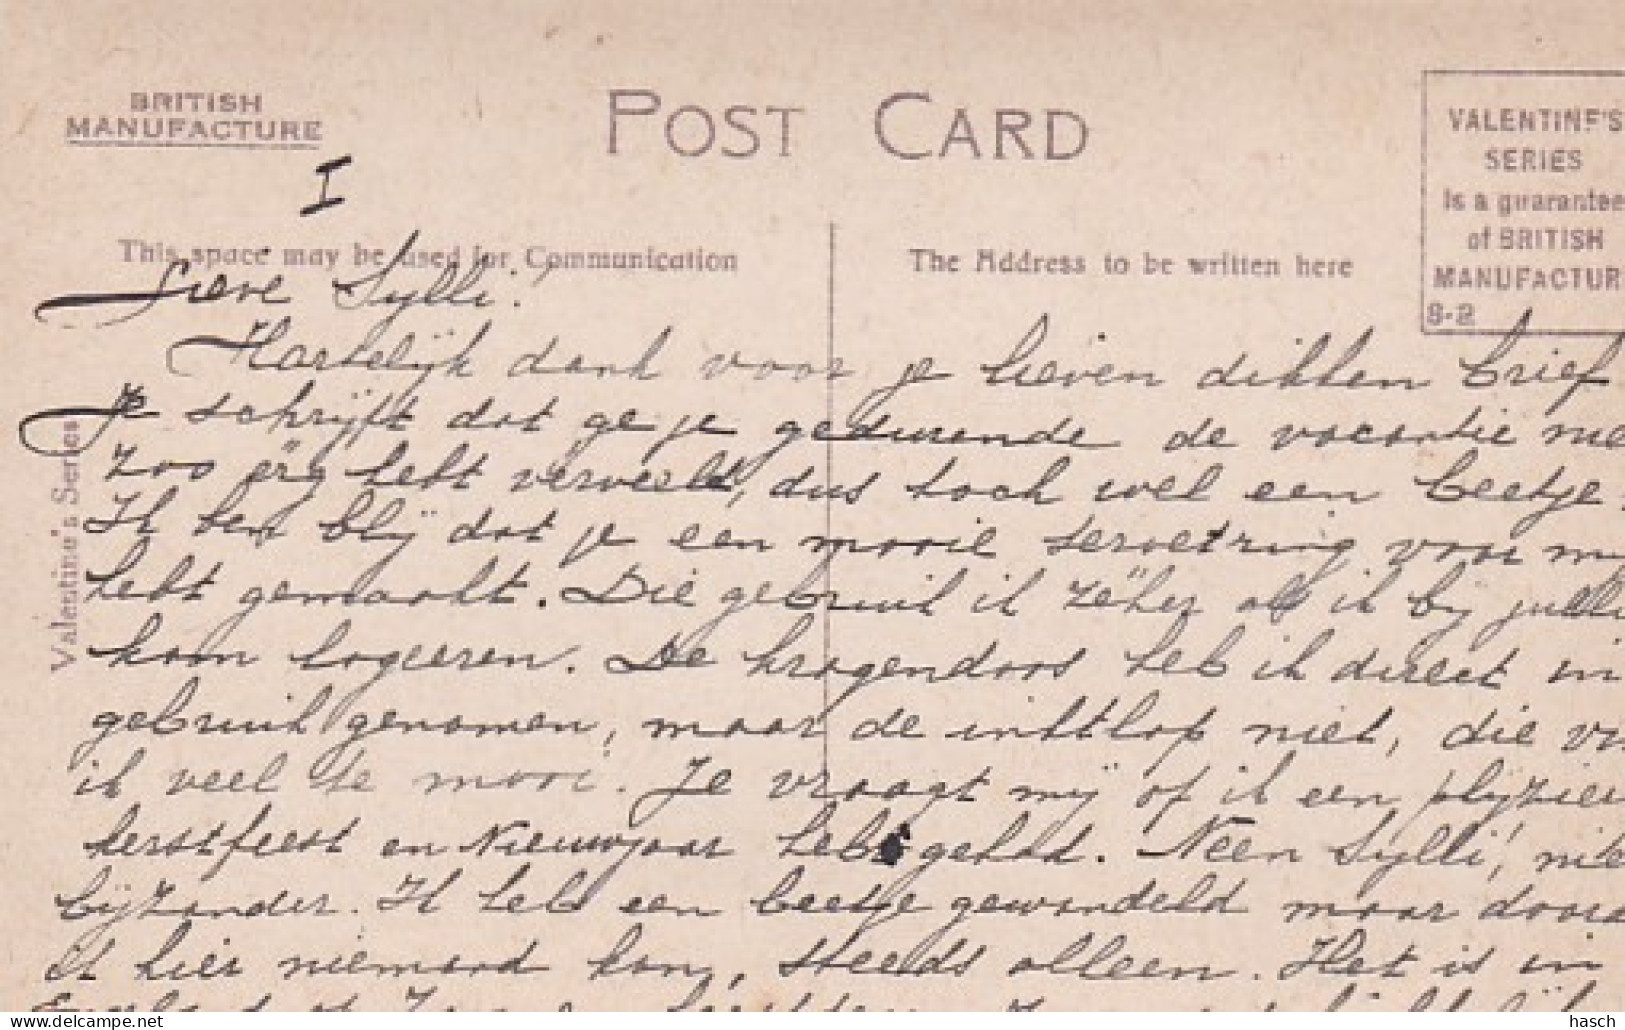 BRITISH
MANUFACTURE
POST CARD
VALENTINE'S
SERIES
is a guarantee
of BRITISH
MANUFACTUR
S-2
I
This space may be used for Communication
The Address to be written here
Valentine's Series
Lieve Sylli!
Hartelijk dank voor je lieven dikken brief
Je schrijft dat ge je gedurende de vacantie nie
zoo erg hebt verveeld, dus toch wel een beetje.
Ik ben blij dat je een mooie servetring voor mij
hebt gemaakt. Die gebruik ik zéker als ik bij julli
kom logeeren. De kragendoos heb ik direct in
gebruik genomen, maar de inktlap niet, die vi
ik veel te mooi. Je vraagt mij of ik een plezier
kerstfeest en Nieuwjaar heb gehad. Neen Sylli, nie
bijzonder. Ik heb een beetje gewandeld maar doord
ik hier niemand kan, steeds alleen. Het is in
hasch